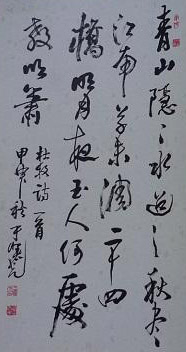 青山隱〻水迢〻秋盡
江南草未凋二十四
橋明月夜玉人何處
教吹簫
杜牧詩一首
甲寅秋